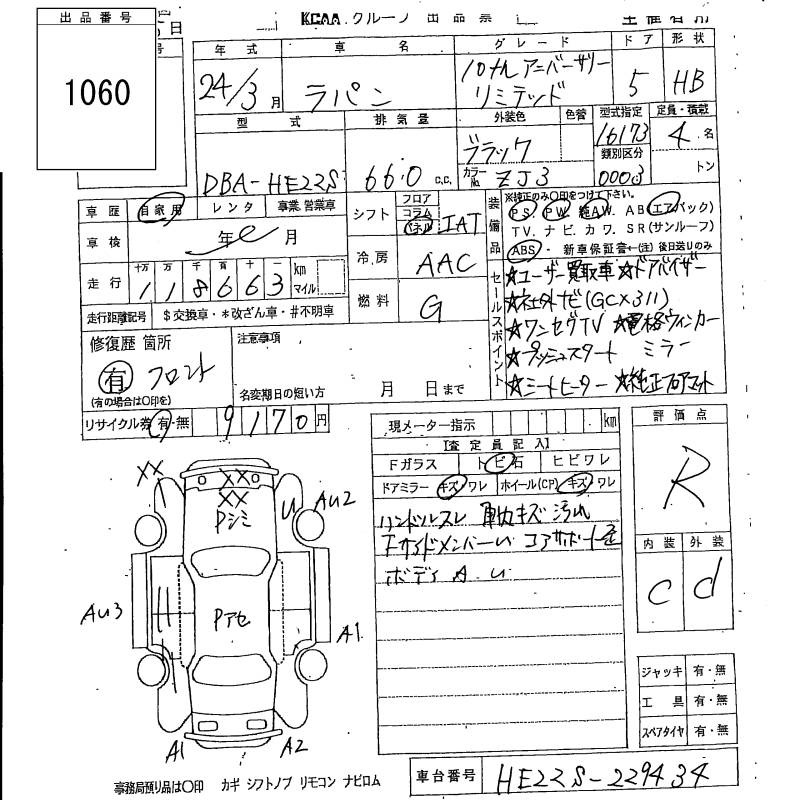 出品番号
1060
日
KCAA グループ 出品票
年式 車名 グレード ドア 形状
24/3月 ラパン 10th アニバーサリーリミテッド 5 HB
型式 排気量 外装色 色替 型式指定 定員・積載
DBA-HE22S 660 c.c. ブラック 16173 4名
カラーNo. ZJ3 類別区分 0003 トン
車歴 自家用 レンタ 事業・営業車
車検 年 月
走行 十万 万 千 百 十 一 km マイル
118663
走行距離記号 $交換車・*改ざん車・#不明車
シフト フロア コラム パネル IAT
冷房 AAC
燃料 G
装備品
※純正のみ〇印をつけて下さい。
PS. PW. 純AW. AB(エアバック)
TV. ナビ. カワ. SR(サンルーフ)
ABS・ 新車保証書←(注)後日送りのみ
セールスポイント
☆ユーザー買取車 ☆ドアバイザー
☆社外ナビ(GCX311)
☆ワンセグTV ☆電格ウィンカー
☆プッシュスタート ミラー
☆シートヒーター ☆純正フロアマット
修復歴 箇所
有 フロント
(有の場合は〇印を)
注意事項
名変期日の短い方 月 日まで
リサイクル券 有・無 9170円
現メーター指示 km
【査定員記入】
Fガラス トビ石 ヒビワレ
ドアミラー キズワレ ホイール(CP) キズワレ
ハンドルスレ 車内キズ 汚れ
Fサイドメンバーu コアサポート歪
ボディ A.u
評価点
R
内装 外装
C d
ジャッキ 有・無
工具 有・無
スペアタイヤ 有・無
XX
XX
XX
Pシミ
U
Au2
Au3
Pアセ
A1
A1
A2
事務局預り品は〇印 カギ シフトノブ リモコン ナビロム
車台番号 HE22S-229434